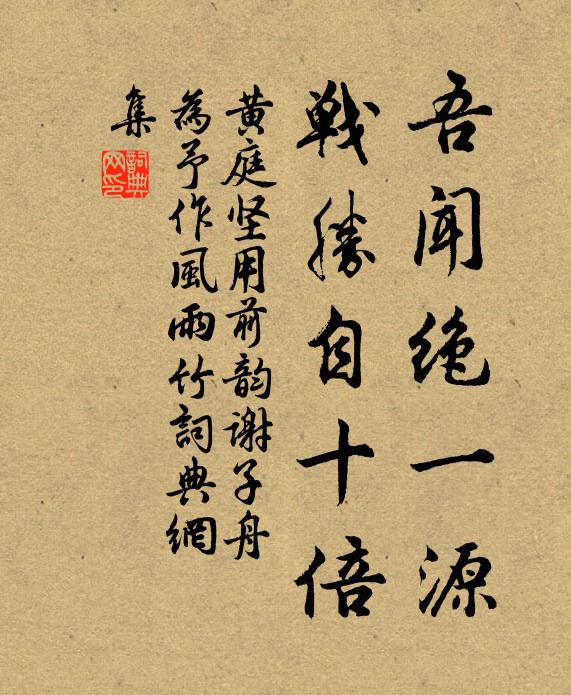 吾闻绝一源
戦勝自十倍
黄庭坚用前韵谢子舟
為予作風雨竹詞典網
集
詞典网印